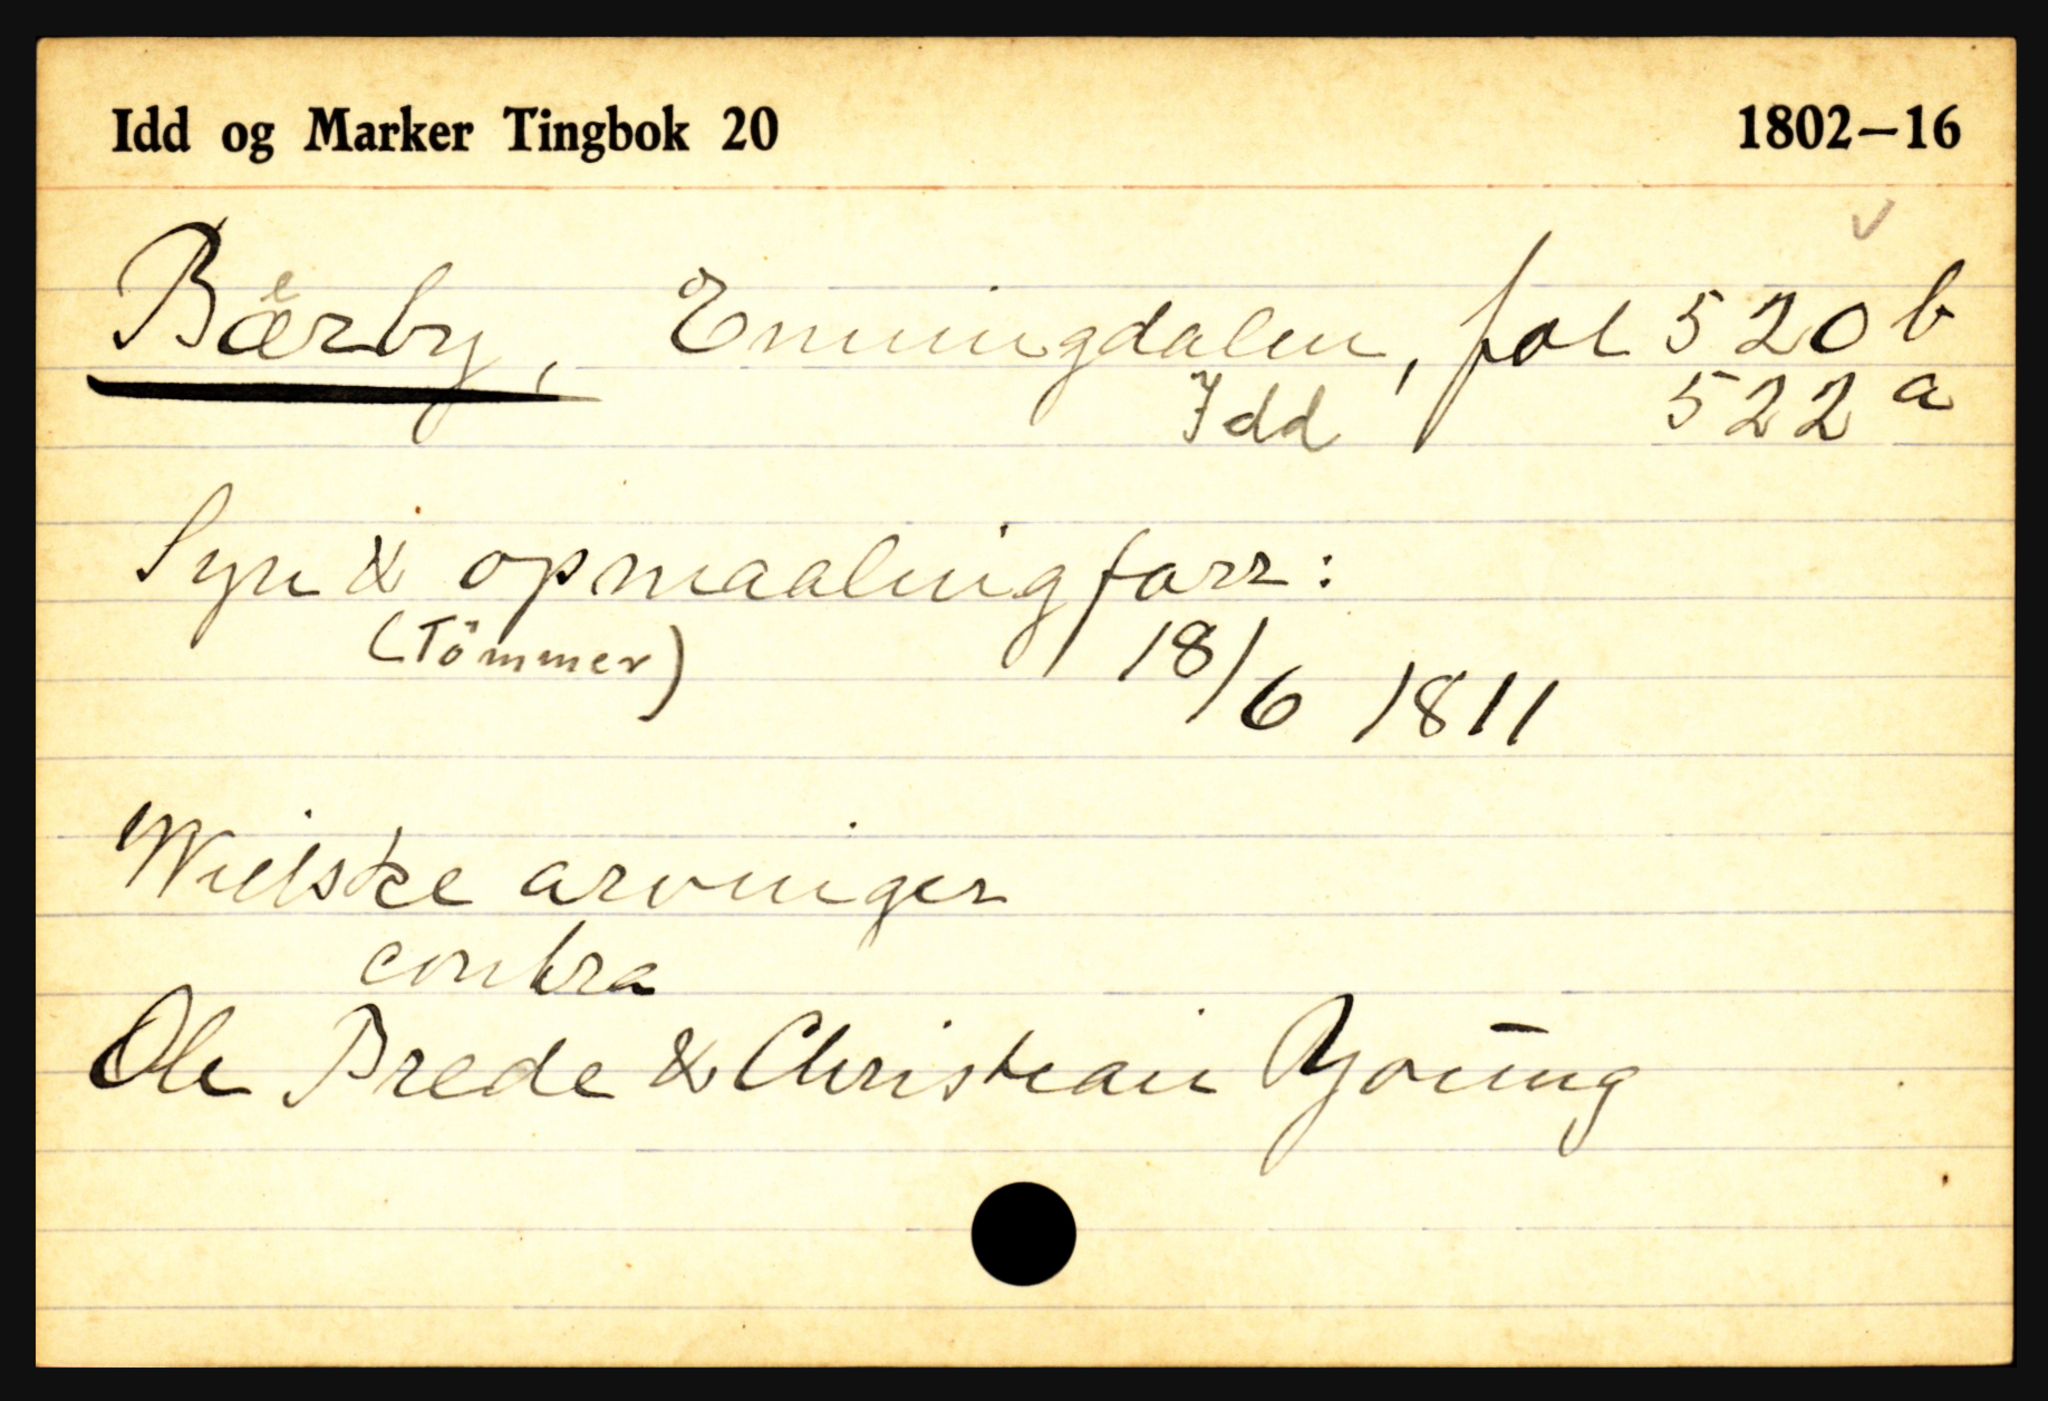 Idd og Marker Tingbok 20 1802–16
Bærby, Enningdalen, fol 520 b
Idd 522 a
Syn & opmaaling forr:
(Tömmer) 18/6 1811
arvinger
contra
Ole Brede & Christian Young